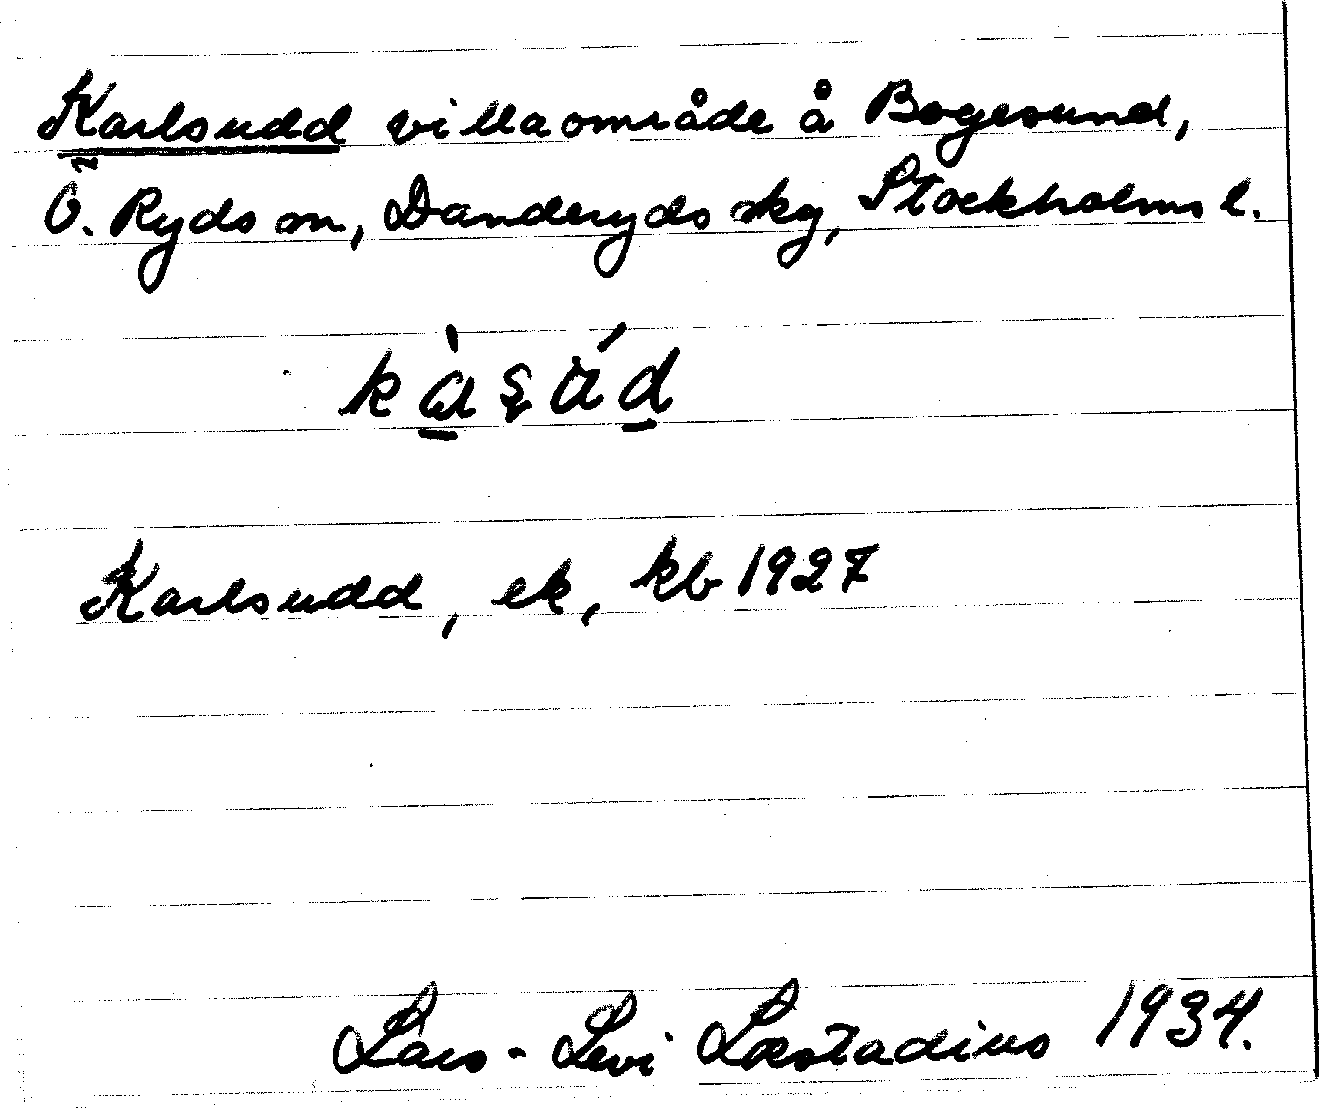 Karlsudd villaområde å Bogesund,
Ö. Ryds sn, Danderyds skg, Stockholms l.
Karlsudd, ek, kb 1927
Lars-Levi Læstadius 1934.